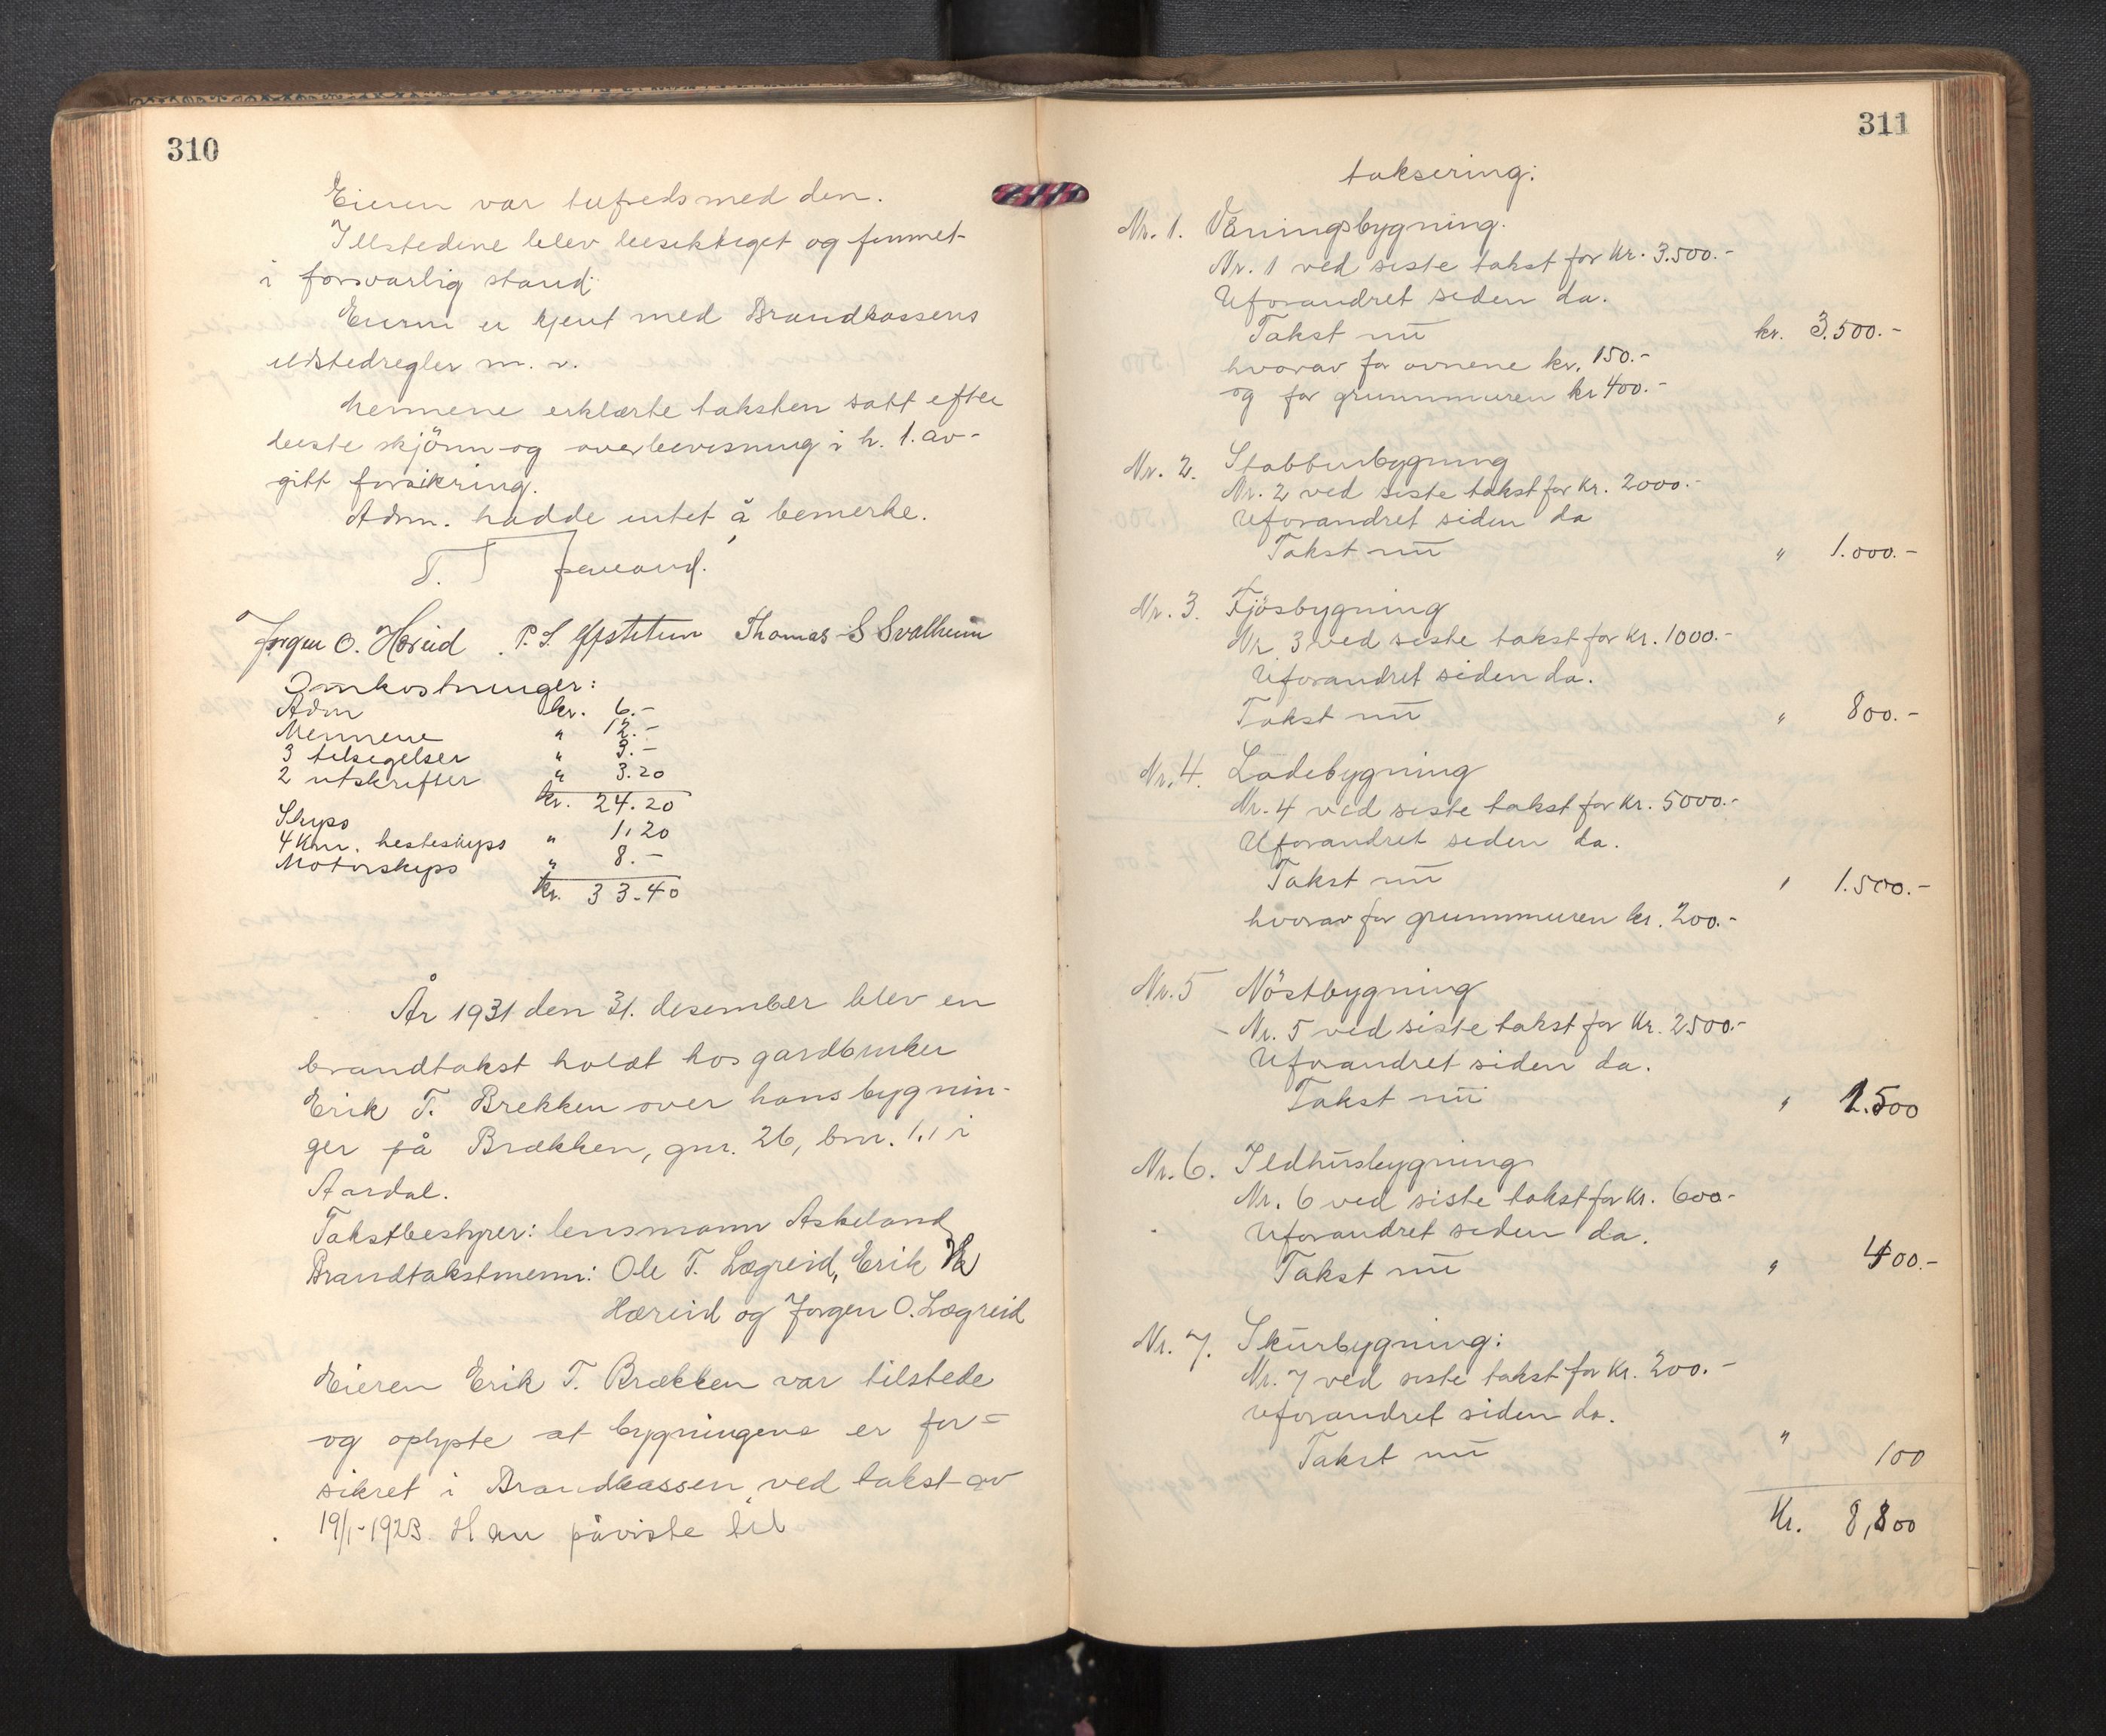 310
Eieren var tilfreds med den.
Ildstedene blev besiktiget og funnet
i forsvarlig stand.
Eieren er kjent med Brandkassens
ildstedregler m. v.
Mennene erklærte taksten satt efter
beste skjönn og overbevisning i h. t. av-
gitt forsikring.
Adm. hadde intet å bemerke.
Jørgen O. Hæreid P. S. Thomas S Svalheim
Omkostninger:
Adm kr. 6.-
Mennene " 12.-
3 tilsigelser " 3.-
2 utskrifter " 3.20
kr. 24.20
Skyss
4 Km. hesteskyss " 1,20
Motorskyss " 8.-
kr. 33.40
År 1931 den 31. desember blev en
brandtakst holdt hos gardbruker
Erik T. Brekken over hans bygnin-
ger på Brækken, gnr. 26, bnr. 1,1 i
Aardal.
Takstbestyrer: lensmann Askeland
Brandtakstmenn: Ole T. Lægreid, Erik
Hæreid og Jørgen O. Lægreid
Eieren Erik T. Brækken var tilstede
og oplyste at bygningene er for=
sikret i Brandkassen ved takst av
19/1-1923. Han påviste til
311
taksering:
Nr. 1. Våningsbygning.
Nr. 1 ved siste takst for Kr. 3.500.-
Uforandret siden da.
Takst nu kr. 3.500.-
hvorav for ovnene kr. 150.-
og for grunnmuren kr 400.-
Nr. 2. Stabbursbygning
Nr. 2 ved siste takst for Kr. 2000.-
Uforandret siden da
Takst nu " 1.000.-
Nr. 3. Fjösbygning
Nr. 3 ved siste takst for Kr. 1000.-
Uforandret siden da.
Takst nu " 800.-
Nr. 4. Ladebygning
Nr. 4 ved siste takst for Kr. 5000.-
Uforandret siden da.
Takst nu " 1.500.-
hvorav for grunnmuren kr. 200.-
Nr. 5 Nöstbygning
Nr. 5 ved siste takst for Kr. 2500.-
Uforandret siden da.
Takst nu " 1.500
Nr. 6. Ildhusbygning
Nr. 6 ved siste takst for Kr. 600-
Uforandret siden da.
Takst nu " 400.-
Nr. 7. Skurbygning:
Nr. 7 ved siste takst for Kr. 200.-
uforandret siden da.
Takst nu " 100
Kr. 8,800